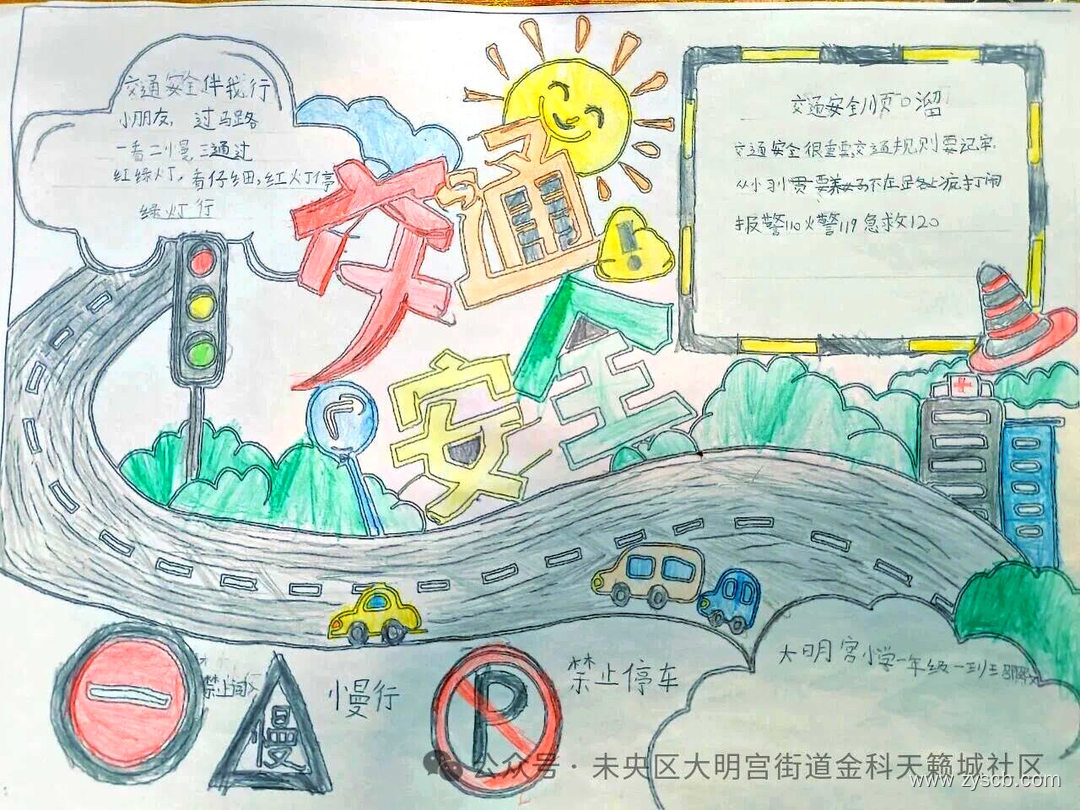 交通安全伴我行
小朋友, 过马路
一看二慢三通过
红绿灯, 看仔细, 红灯停
绿灯行
交通
安全
交通安全顺口溜
交通安全很重要,交通规则要记牢.
从小习惯要养好不在马路疯打闹
报警110火警119急救120
禁止
慢
慢行
P
禁止停车
大明宫小学一年级一班王
公众号 · 未央区大明宫街道金科天籁城社区
www.zyscb.com